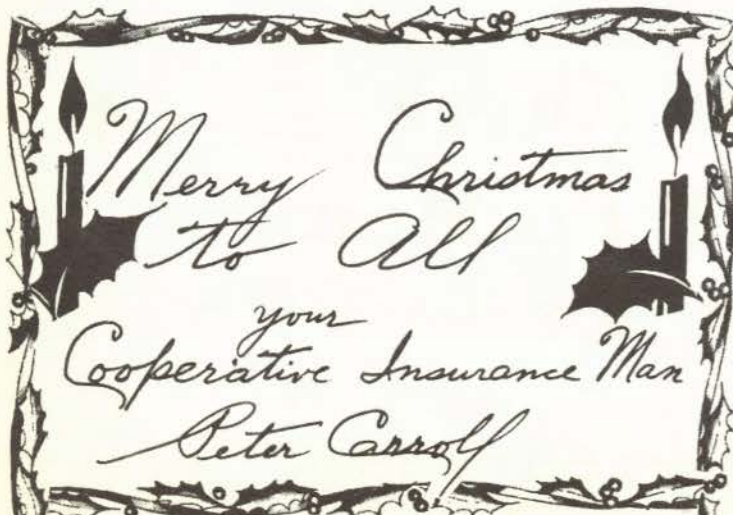 Merry Christmas
to All
your
Cooperative Insurance Man
Peter Carroll